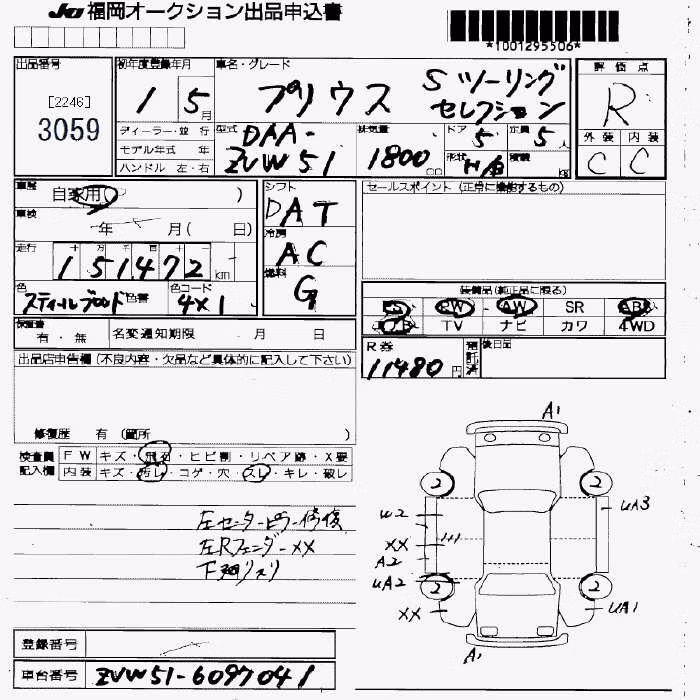 JU 福岡オークション出品申込書
*1001295506*
出品番号
[2246]
3059
初年度登録年月
1 5月
車名・グレード
プリウス Sツーリングセレクション
評価点
R
外装 内装
C C
ディーラー・並行
モデル年式 年
ハンドル 左・右
型式
DAA-
ZVW51
排気量
1800 cc
ドア 5
定員 5人
形状 H/B
積載 kg
車歴
自家用( )
車検
年 月( 日)
走行
十 万 千 百 十 一
151472 km
色
スティールブロンド 色替
色コード
4X1
シフト
DAT
冷房
AC
燃料
G
セールスポイント (正常に機能するもの)
装備品(純正品に限る)
PS PW AW SR ABS
TV ナビ カワ 4WD
保証書
有・無
名変通知期限 ・ 月 日
R券
11480 円
預託済
後日品
出品店申告欄 (不良内容・欠品など具体的に記入して下さい)
修復歴 有 (箇所 )
検査員記入欄
FW キズ・飛石・ヒビ割・リペア跡・X要
内装 キズ・汚レ・コゲ・穴・スレ・キレ・破レ
左センターピラー修復
左Rフェンダー XX
下廻リスリ
A1
2 2
W2 UA3
XX
A2
UA2 2 2
XX UA1
A1
登録番号
車台番号 ZVW51-6097041